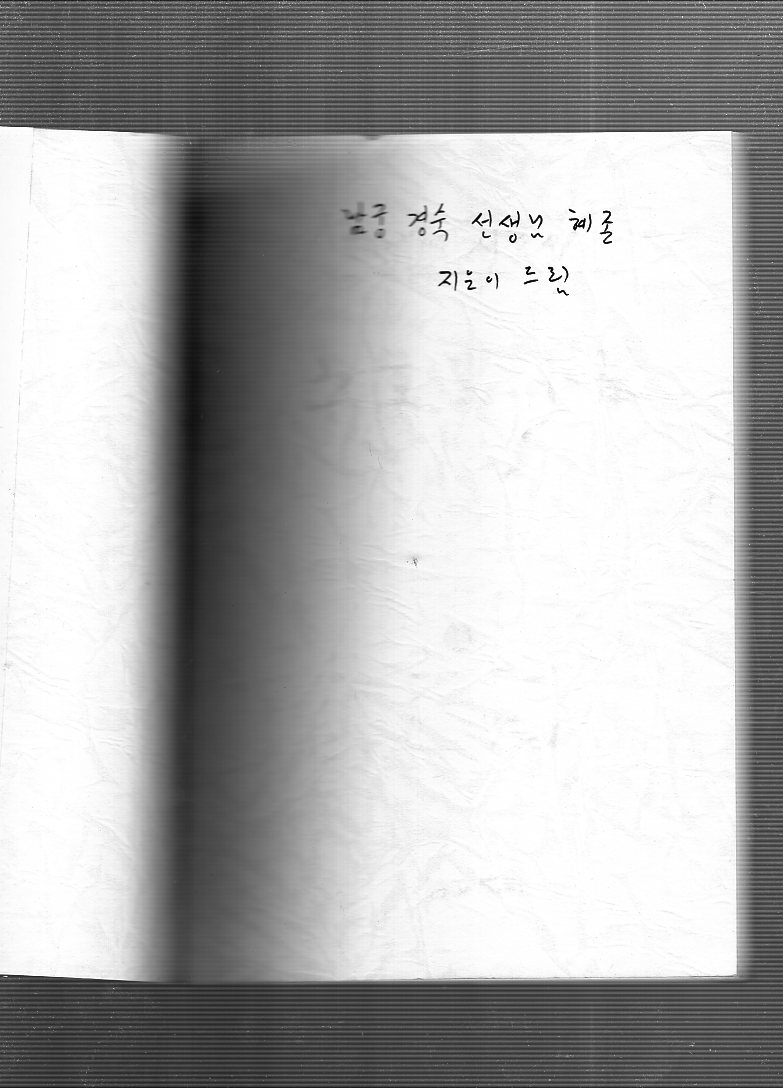 남궁 경숙 선생님 혜존
지은이 드림